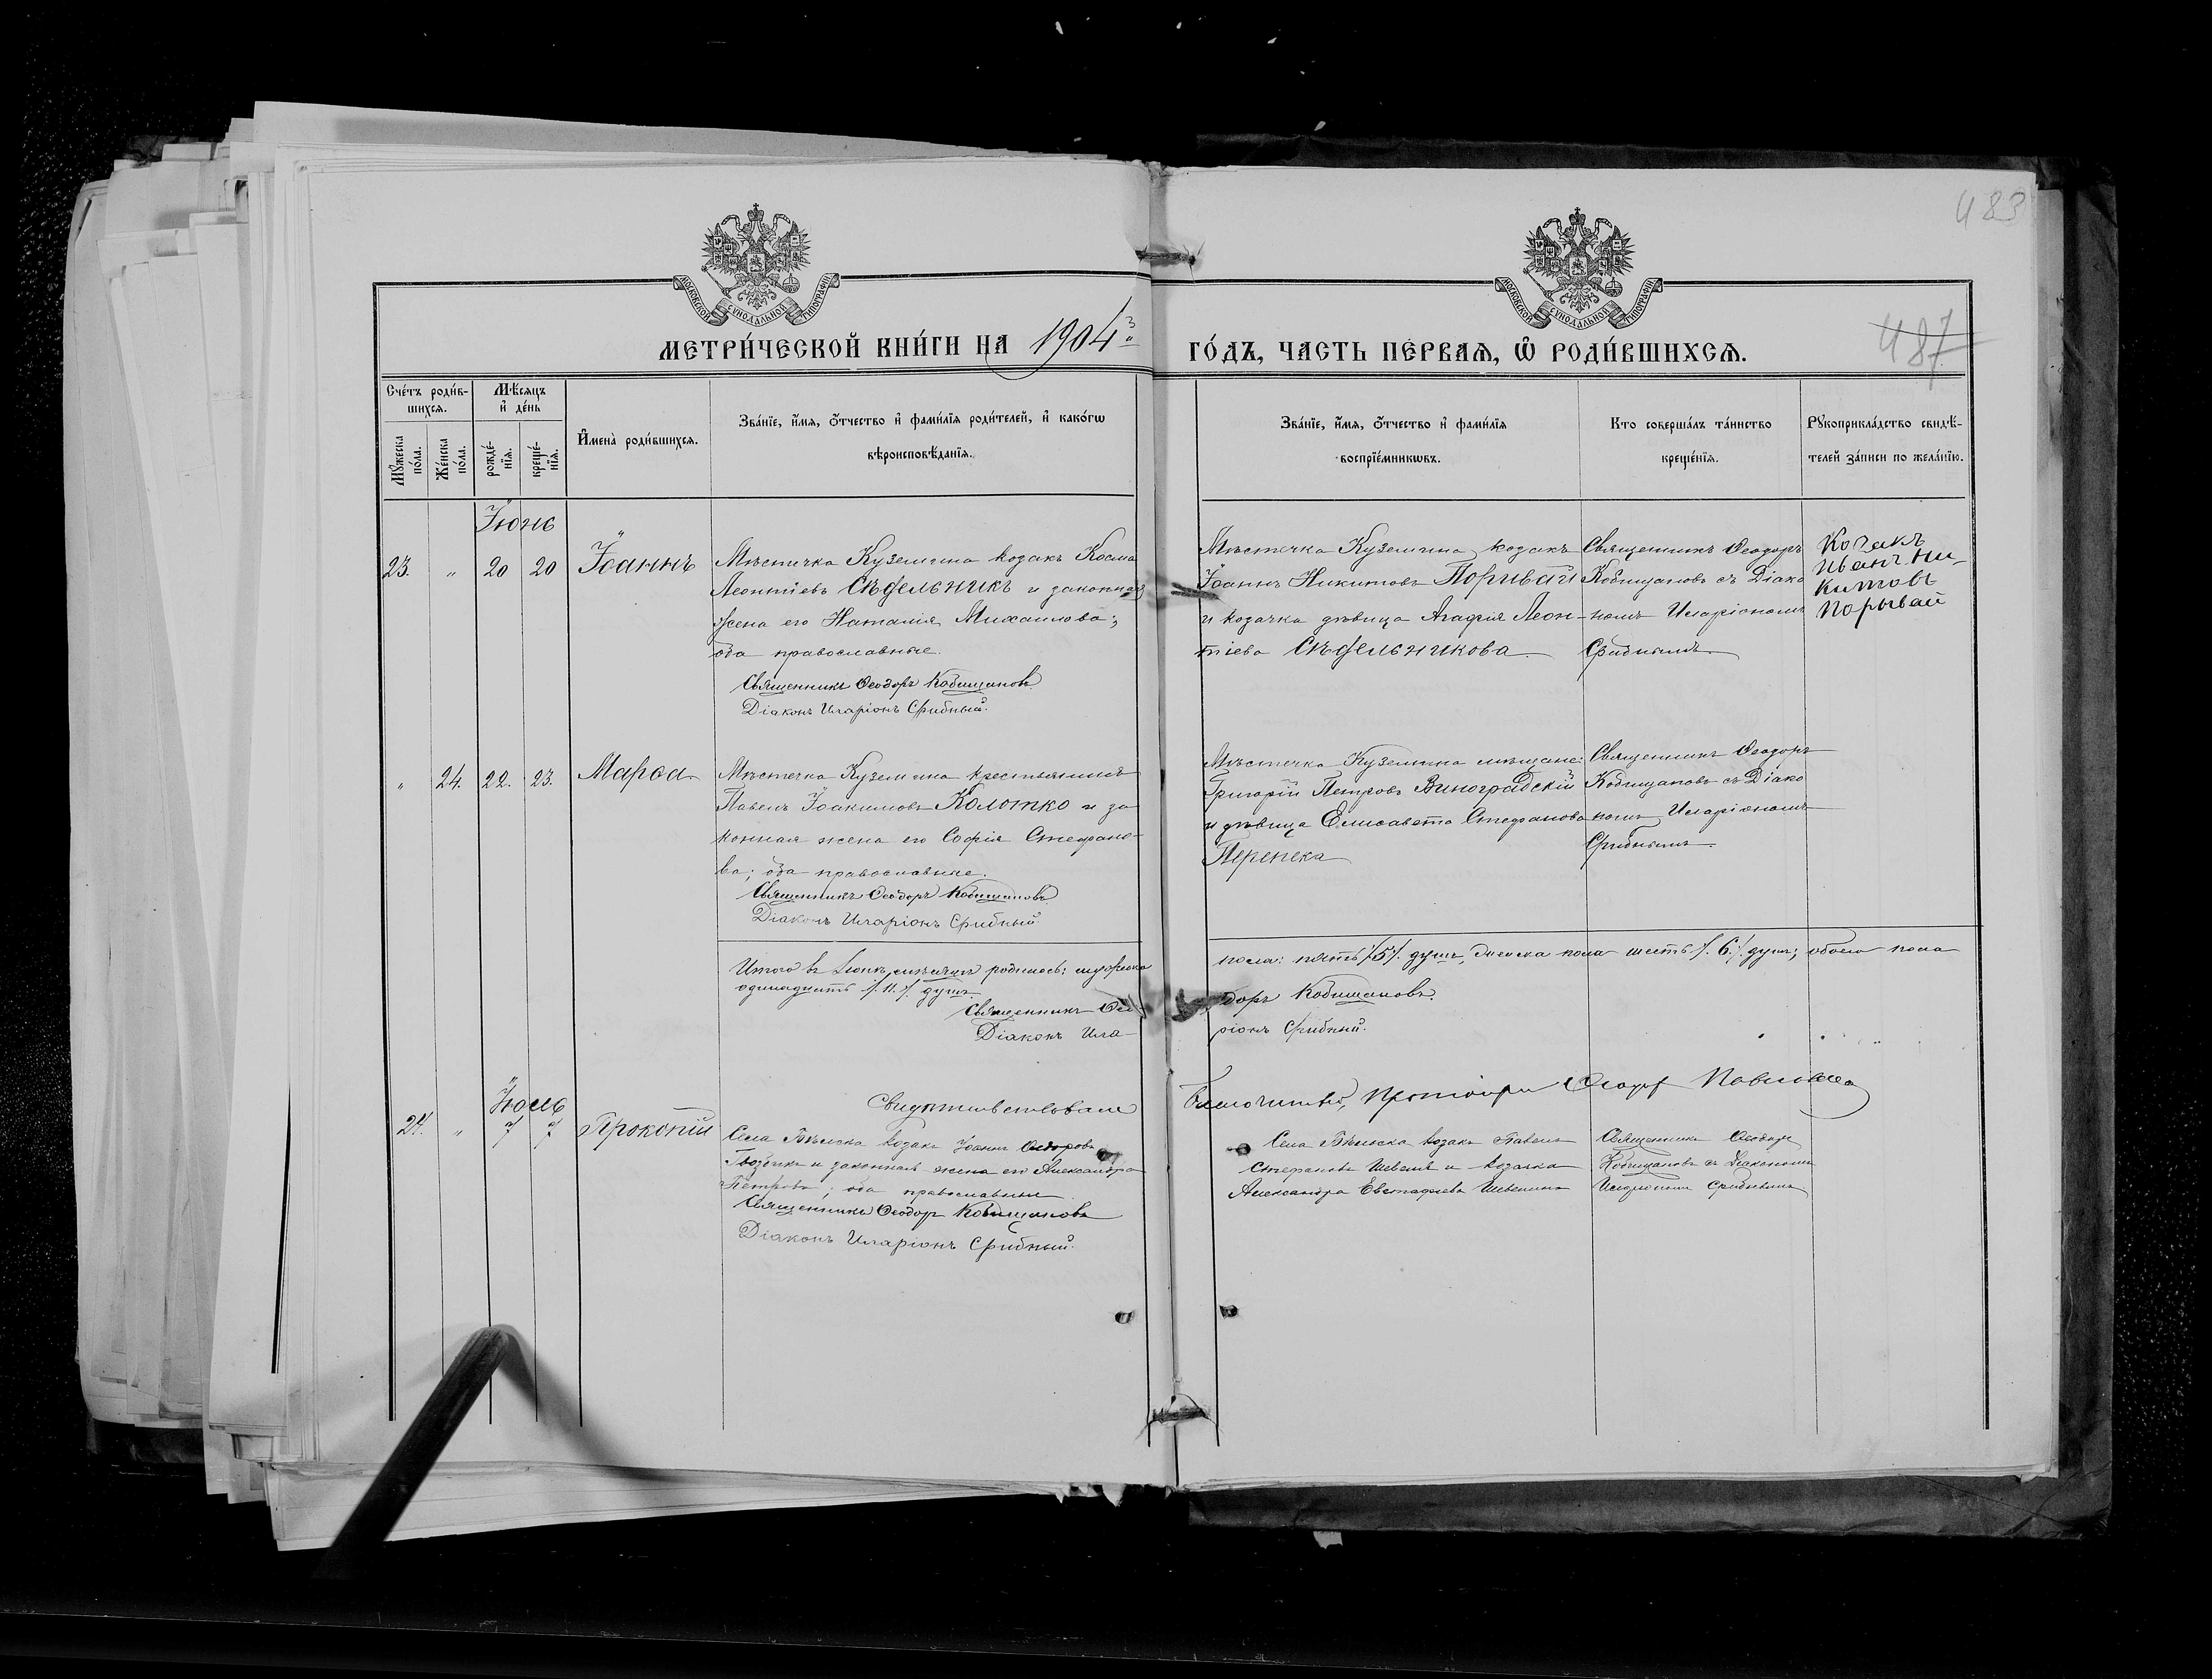 483
487
МОСКОВСКОЙ СѴНОДАЛЬНОЙ ТИПОГРАФІИ
МОСКОВСКОЙ СѴНОДАЛЬНОЙ ТИПОГРАФІИ
МЕТРИ́ЧЕСКОЙ КНИ́ГИ НА 1904
ГО́ДЪ, ЧАСТЬ ПЕ́РВАѦ, Ѽ РОДИ́ВШИХСѦ.
Сче́тъ роди́в-
шихсѧ.
Мꙋ́жеска
по́ла.
Же́нска
по́ла.
Мѣ́сѧцъ
и҆ де́нь
рожде́-
нїѧ.
креще́-
нїѧ.
И҆мена̀ роди́вшихсѧ.
Зва́нїе, и҆́мѧ, ѻ҆́тчество и҆ фами́лїѧ роди́телей, и҆ како́гѡ
вѣроисповѣ́данїѧ.
Зва́нїе, и҆́мѧ, ѻ҆́тчество и҆ фами́лїѧ
воспрїе́мникѡвъ.
Кто соверша́лъ та́инство
креще́нїѧ.
Рꙋкоприкла́дство свидѣ́-
телей за́писи по жела́нїю.
Іюнь
23. " 20 20 Іоаннъ
Мѣстечка Куземина козакъ Косма
Леонтіевъ Сѣдельникъ и законная
жена его Наталія Михаилова;
оба православные.
Священникъ Ѳеодоръ Кобищановъ
Діаконъ Иларіонъ Срибный.
Мѣстечка Куземина козакъ
Іоаннъ Никитовъ Поривай
и козачка дѣвица Агафія Леон-
тіева Сѣдельникова
Священникъ Ѳеодоръ
Кобищановъ съ Діако
номъ Иларіономъ
Срибнымъ
Козакъ
Иванъ Ни-
китовъ
Порывай
" 24. 22. 23. Марѳа
Мѣстечка Куземина крестьянинъ
Павелъ Іоакимовъ Колотко и за
конная жена его Софія Стефано-
ва; оба православные.
Священникъ Ѳеодоръ Кобищановъ
Діаконъ Иларіонъ Срибный.
Мѣстечка Куземина мѣщане:
Григорій Петровъ Виноградскій
и дѣвица Елисавета Стефанова
Перепека
Священникъ Ѳеодоръ
Кобищановъ съ Діако
номъ Иларіономъ
Срибнымъ
Итого въ Іюнѣ мѣсяцѣ родилось: мужеска
пола: пять /.5./. душъ, женска пола шесть /.6./. душъ; обоего пола
одинадцать /.11./. душъ
Священникъ Ѳео
доръ Кобищановъ.
Діаконъ Ила-
ріонъ Срибный.
Свидѣтельствовалъ
Благочинный, Протоіерей Ѳеодор
Іюль
24. " 7 7 Прокопій
Села Бѣльска козакъ Іоаннъ Ѳеодоровъ
Гвоздикъ и законная жена его Александра
Петрова; оба православные
Священникъ Ѳеодоръ Кобищановъ
Діаконъ Иларіонъ Срибный.
Села Бѣльска козакъ Павелъ
Стефановъ и козачка
Александра Евстафіева
Священникъ Ѳеодоръ
Кобищановъ съ Діакономъ
Иларіономъ Срибнымъ